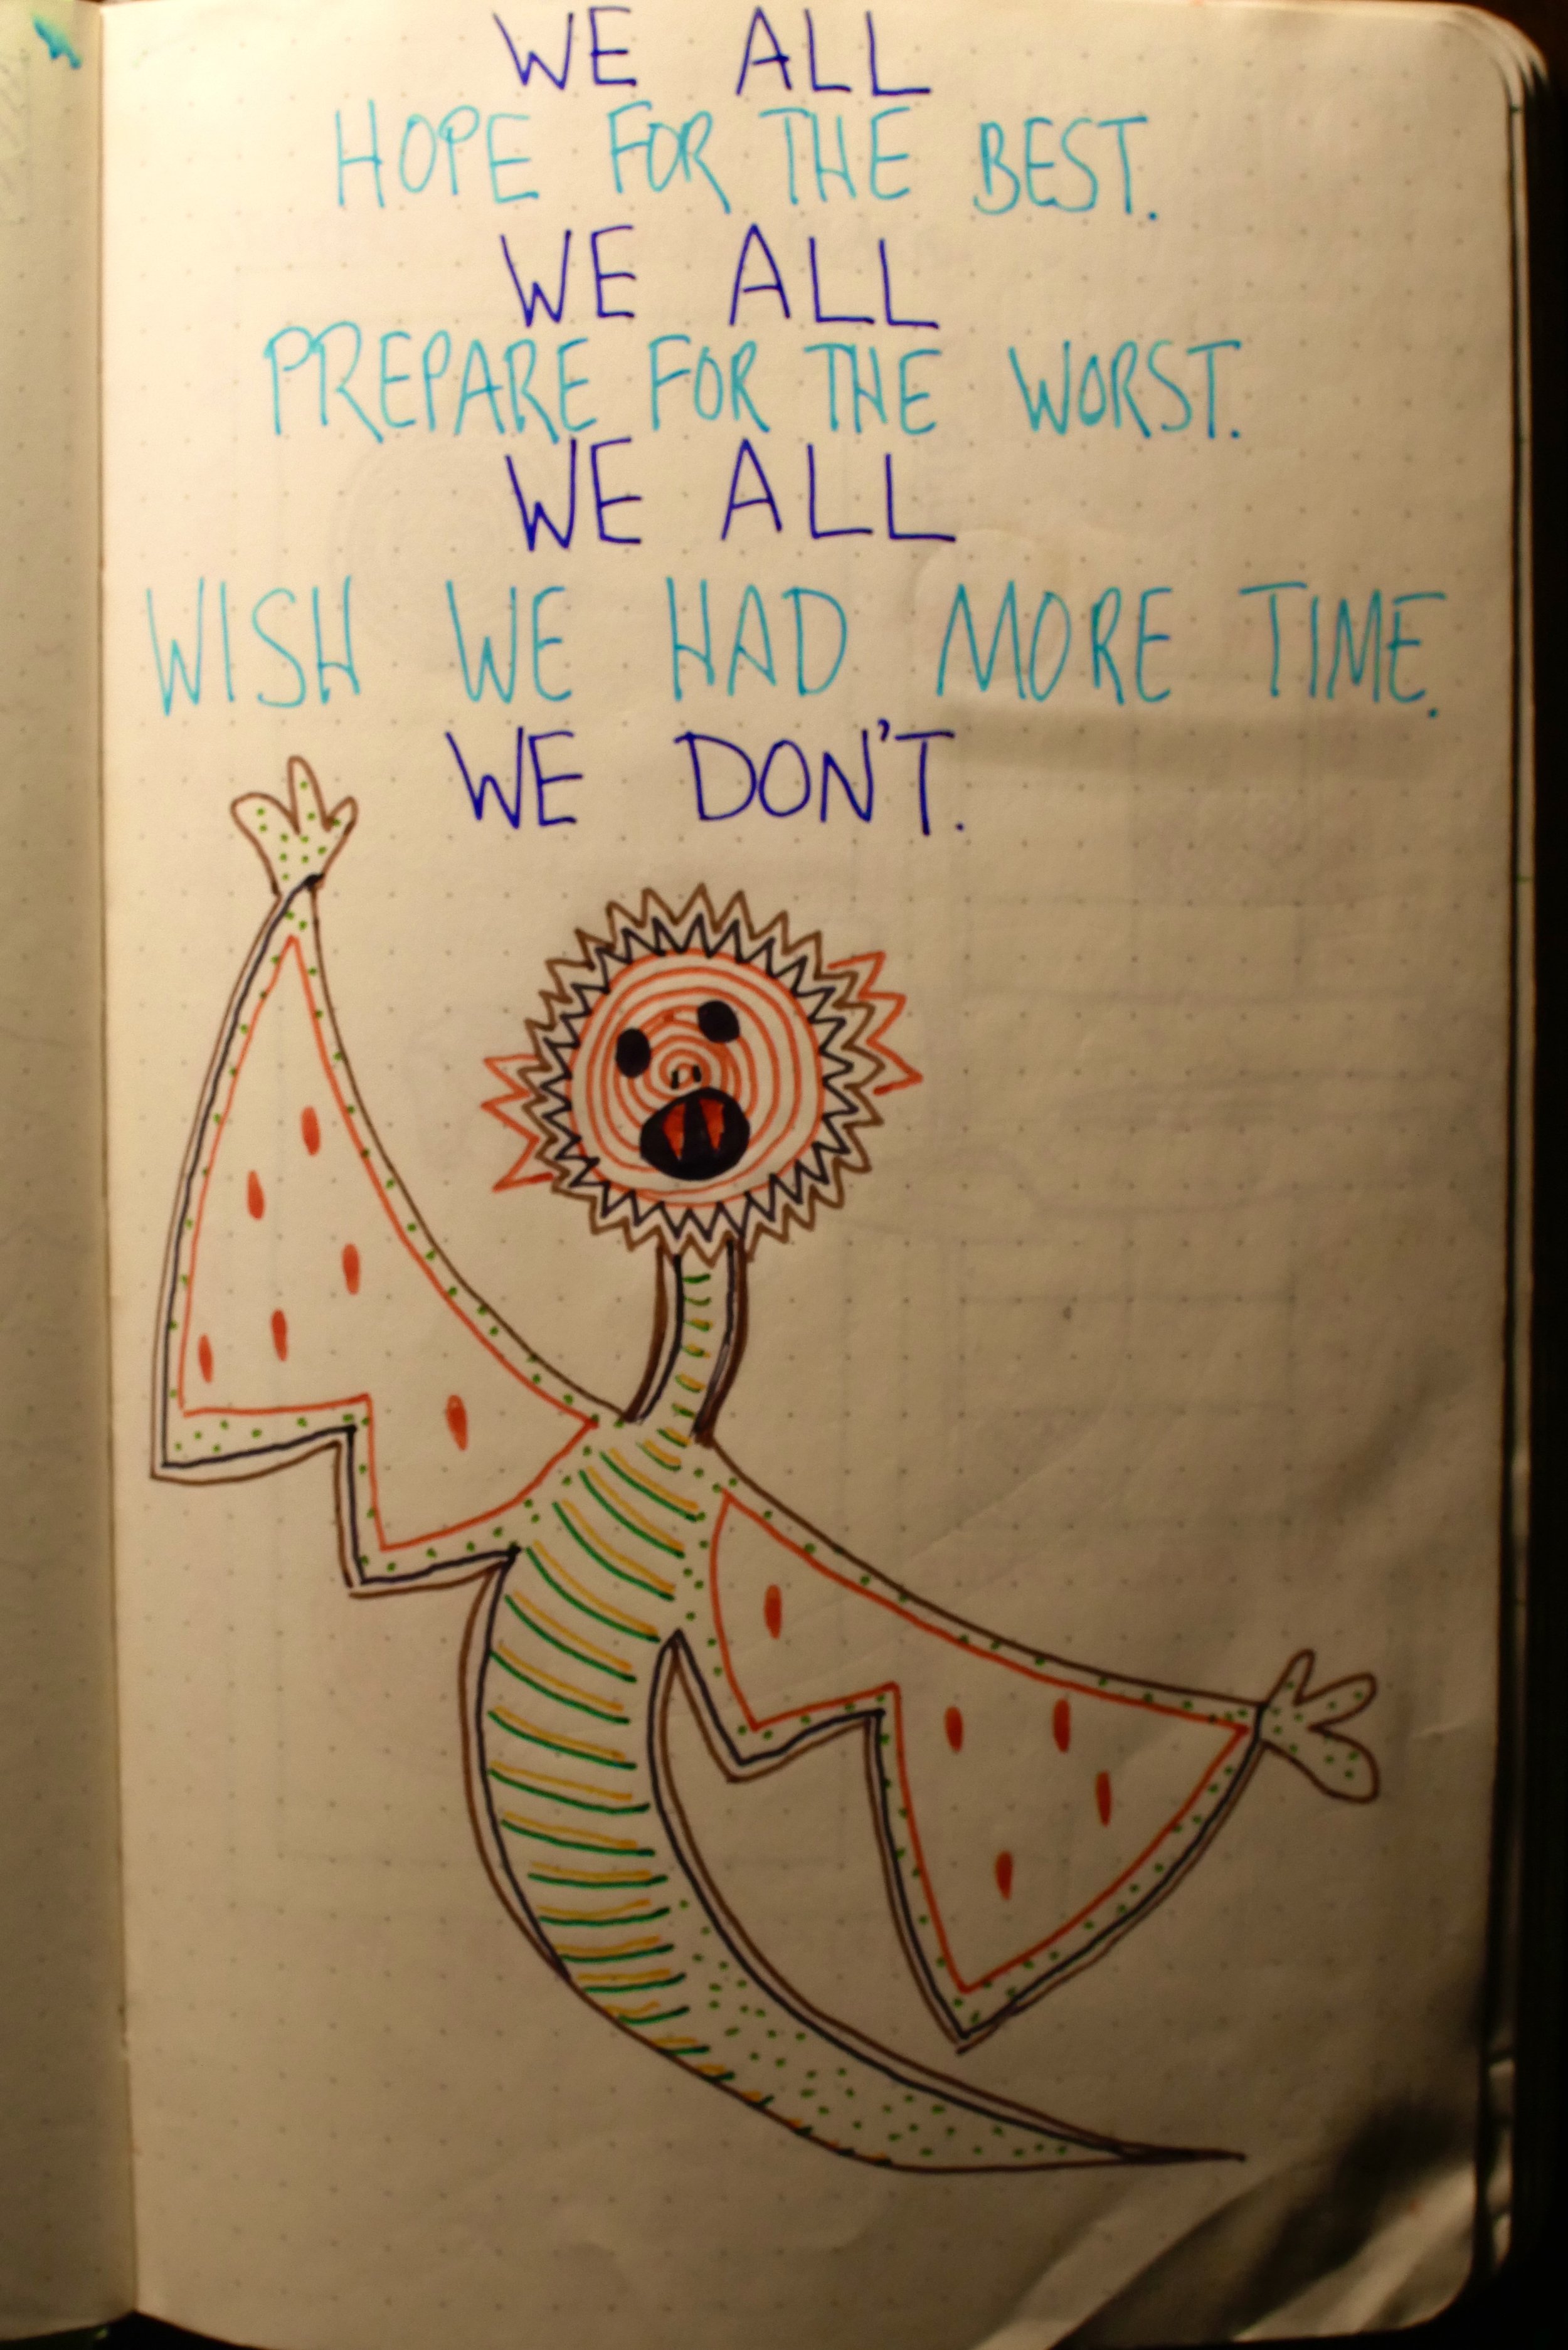 WE ALL
HOPE FOR THE BEST.
WE ALL
PREPARE FOR THE WORST.
WE ALL
WISH WE HAD MORE TIME.
WE DON'T.